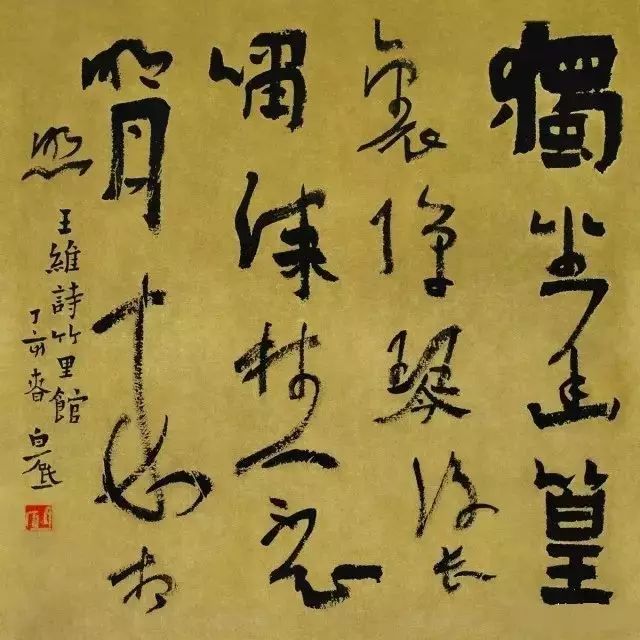 獨坐幽篁
裏彈琴復長
嘯深林人不知
明月來相
照
王維詩竹里館
丁亥春白砥